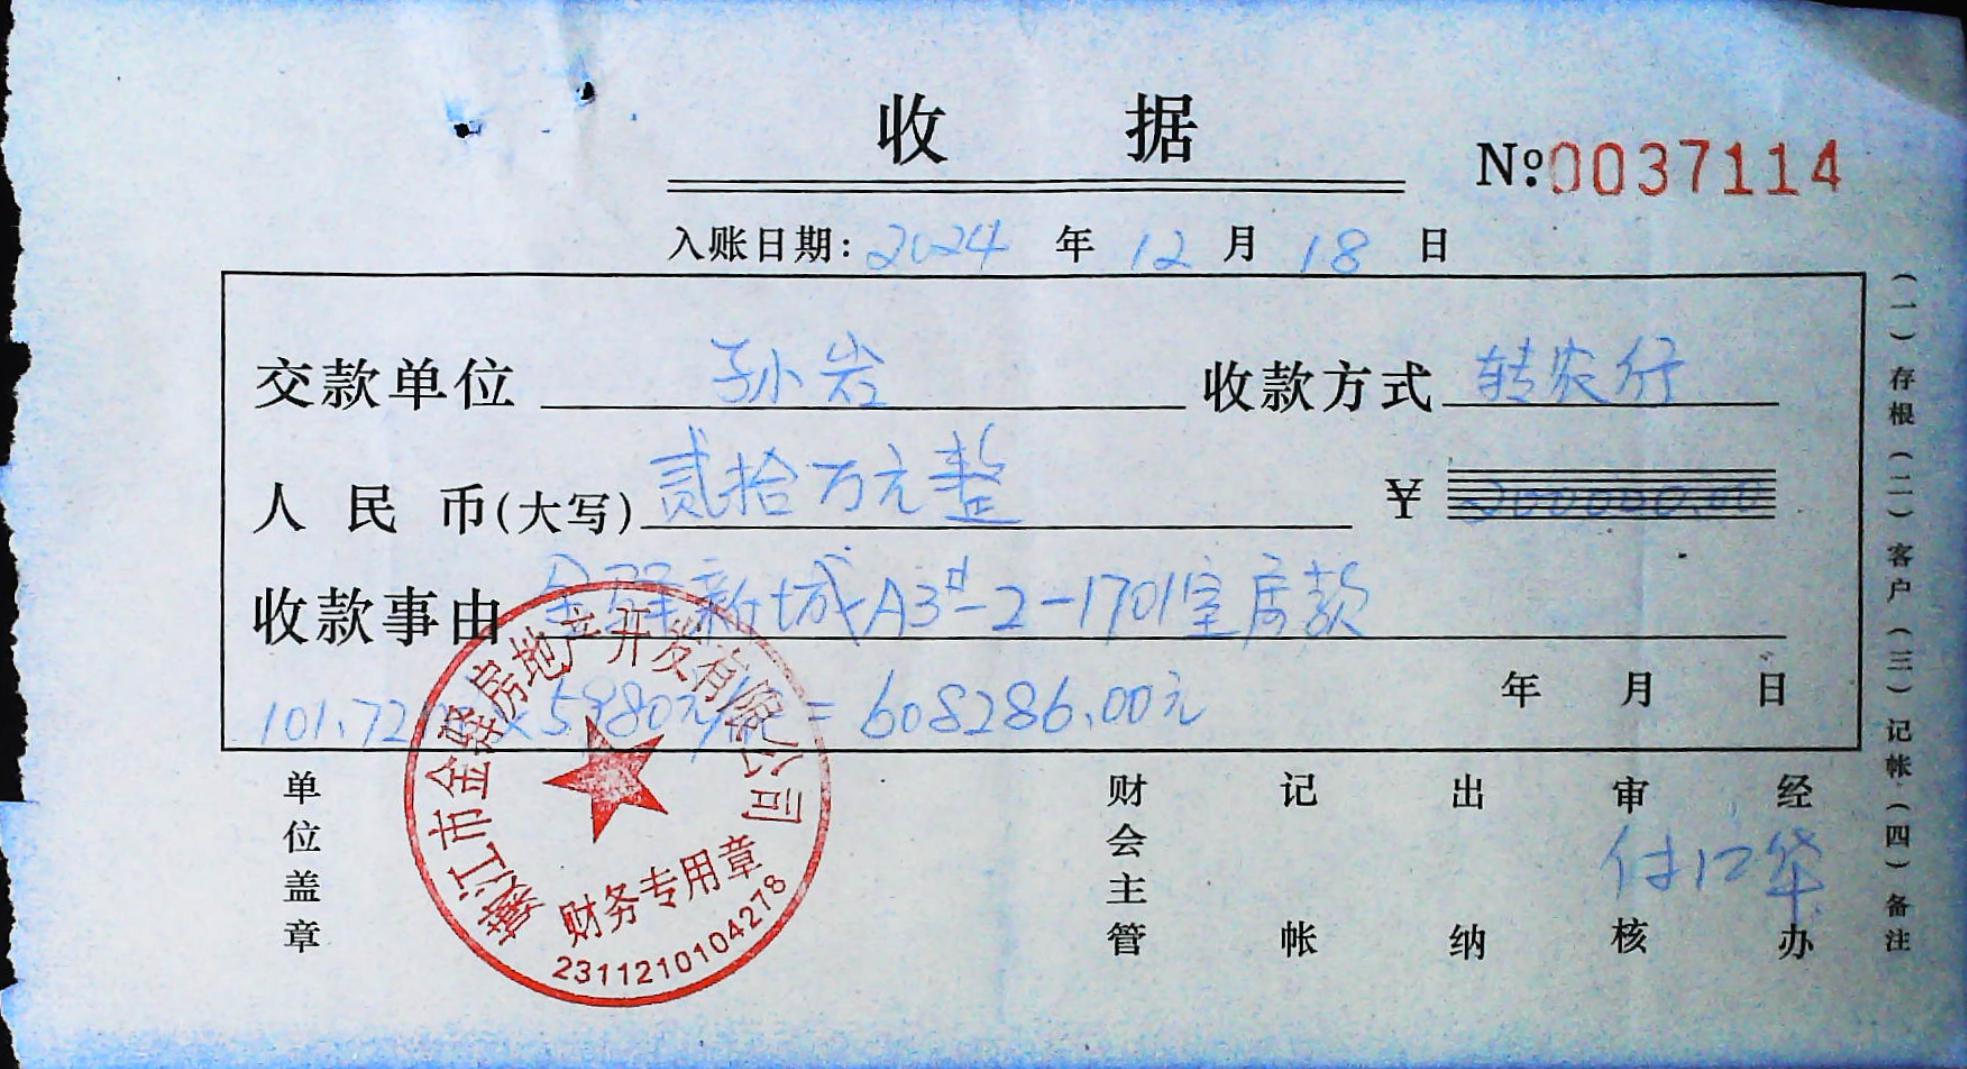 收 据
№0037114
入账日期: 2024 年 12 月 18 日
交款单位 孙岩 收款方式 转农行
人 民 币(大写) 贰拾万元整 ¥ 200000.00
收款事由 金驿新城A3#-2-1701室房款
101.72㎡×5980元/㎡ = 608286.00元 年 月 日
单位盖章
财会主管
记帐
出纳
审核
经办
江市金 房地产开发有限公司
财务专用章
2311210104278
(一)存根(二)客户(三)记帐(四)备注